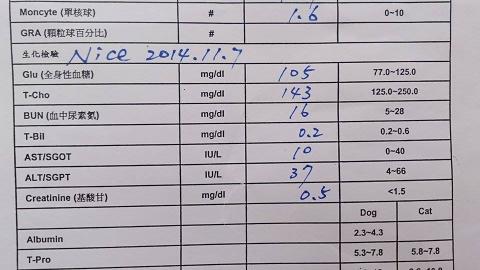 Moncyte (單核球) # 1.6 0~10
GRA (顆粒球百分比) #
生化檢驗 Nice 2014.11.7
Glu (全身性血糖) mg/dl 105 77.0~125.0
T-Cho mg/dl 143 125.0~250.0
BUN (血中尿素氮) mg/dl 16 5~28
T-Bil mg/dl 0.2 0.2~0.6
AST/SGOT IU/L 10 0~40
ALT/SGPT IU/L 37 4~66
Creatinine (基酸甘) mg/dl 0.5 <1.5
Dog Cat
Albumin 2.3~4.3
T-Pro 5.3~7.8 5.8~7.8